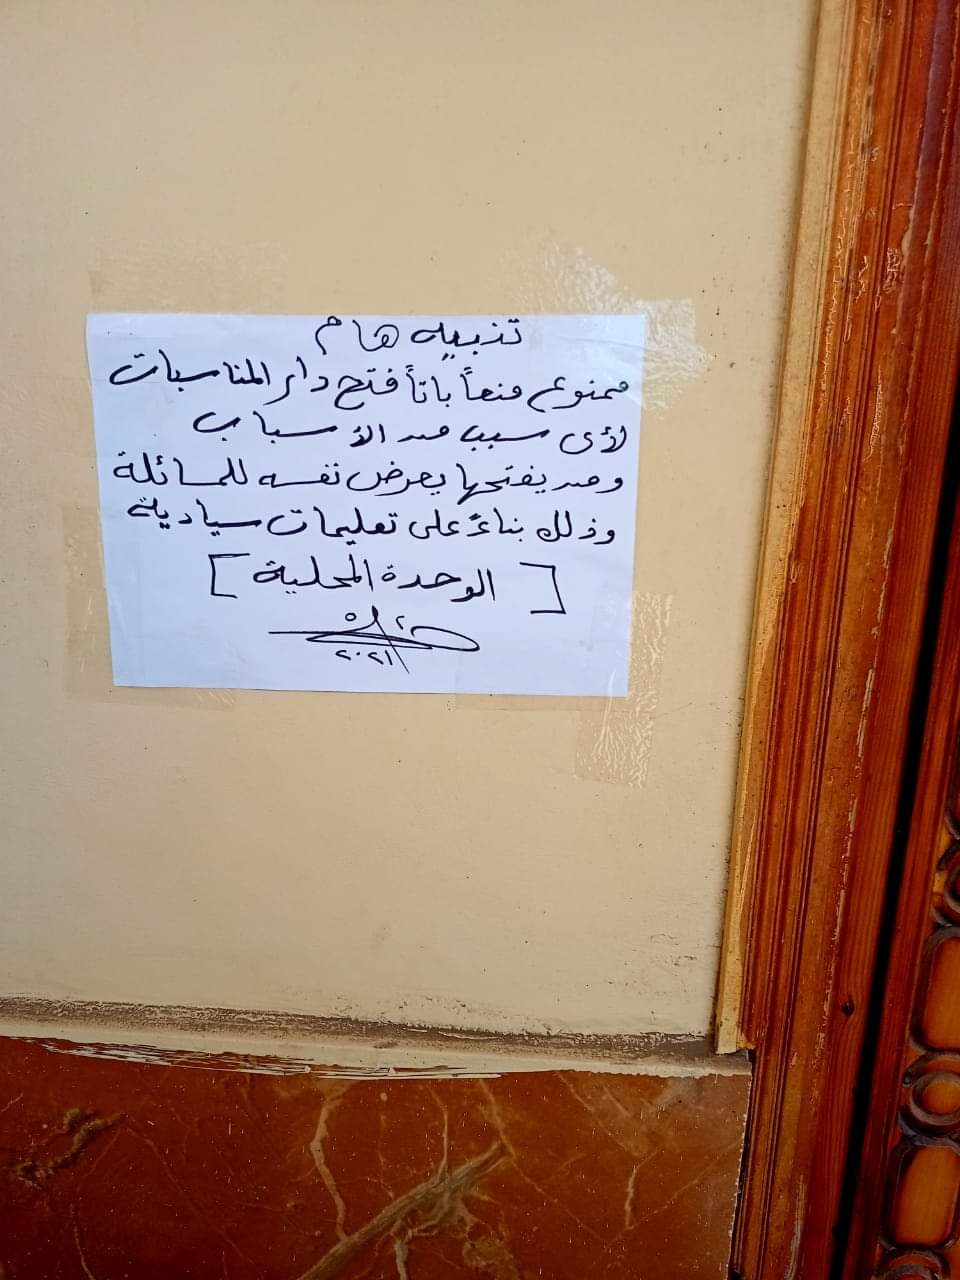 تنبيه هام
ممنوع منعاً باتاً فتح دار المناسبات
لأى سبب من الأسباب
ومن يفتحها يعرض نفسه للمسائلة
وذلك بناءً على تعليمات سيادية
[الوحدة المحلية]
٢٠٢١